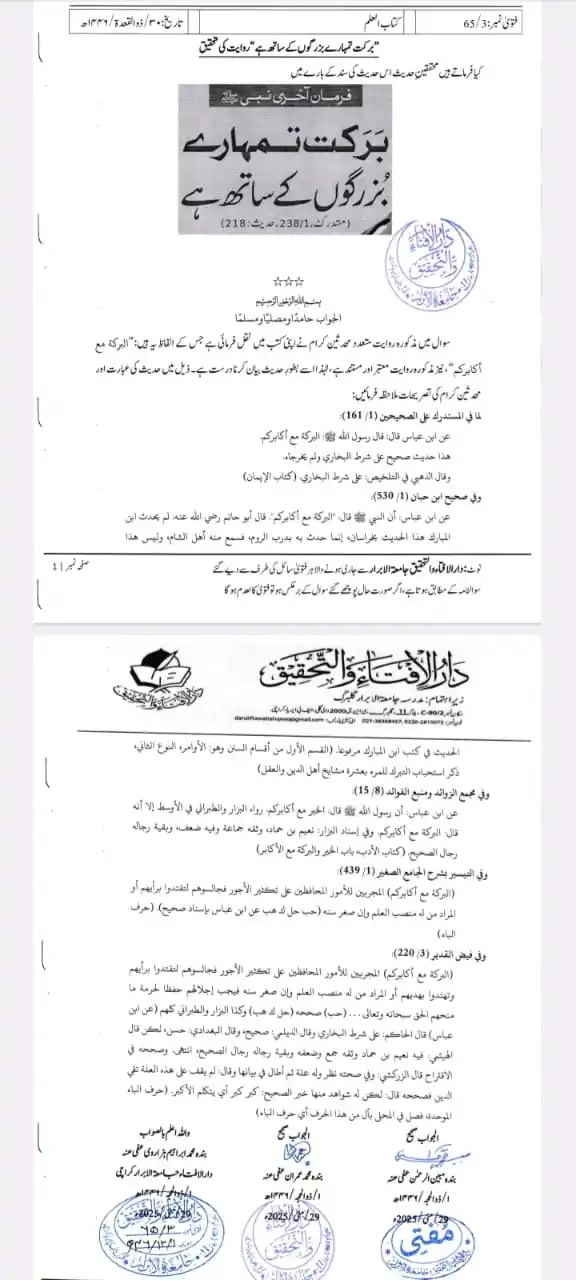 فتویٰ نمبر: 65/3
کتاب العلم
تاریخ: ۳۰/ذوالقعدة/۱۴۴۶ھ
"برکت تمہارے بزرگوں کے ساتھ ہے" روایت کی تحقیق
کیا فرماتے ہیں محققینِ حدیث اس حدیث کی سند کے بارے میں
فرمان آخری نبی ﷺ
بَرَکت تمہارے
بُزرگوں کے ساتھ ہے
(مستدرک، 238/1، حدیث: 218)
دار الإفتاء والتحقیق
☆☆☆
بسم الله الرحمن الرحیم
الجواب حامدًا ومصلیًا ومسلمًا
سوال میں مذکورہ روایت متعدد محدثین کرام نے اپنی کتب میں نقل فرمائی ہے جس کے الفاظ یہ ہیں: "البركة مع
أكابركم"، نیز مذکورہ روایت معتبر اور مستند ہے، لہٰذا اسے بطورِ حدیث بیان کرنا درست ہے۔ ذیل میں حدیث کی عبارت اور
محدثین کرام کی تصریحات ملاحظہ فرمائیں:
لما في المستدرك على الصحيحين (1/ 161):
عن ابن عباس قال: قال رسول الله ﷺ: البركة مع أكابركم.
هذا حديث صحيح على شرط البخاري ولم يخرجاه.
وقال الذهبي في التلخيص: على شرط البخاري. (كتاب الإيمان)
وفي صحيح ابن حبان (1/ 530):
عن ابن عباس: أن النبي ﷺ قال: "البركة مع أكابركم". قال أبو حاتم رضي الله عنه: لم يحدث ابن
المبارك هذا الحديث بخراسان، إنما حدث به بدرب الروم، فسمع منه أهل الشام، وليس هذا
نوٹ: دار الافتاء والتحقیق جامعۃ الابرار سے جاری ہونے والا ہر فتویٰ سائل کی طرف سے دیے گئے
سوالنامہ کے مطابق ہوتا ہے، اگر صورت حال پوچھے گئے سوال کے برعکس ہو تو فتویٰ کالعدم ہوگا
صفحہ نمبر | 1
دار الافتاء والتحقیق
زیر اہتمام: مدرسہ جامعۃ الابرار گلبرگ
الحديث في كتب ابن المبارك مرفوعا. (القسم الأول من أقسام السنن وهو: الأوامر، النوع الثاني،
ذكر استحباب التبرك للمرء بعشرة مشايخ أهل الدين والعقل)
وفي مجمع الزوائد ومنبع الفوائد (8/ 15):
عن ابن عباس: أن رسول الله ﷺ قال: الخير مع أكابركم. رواه البزار والطبراني في الأوسط إلا أنه
قال: البركة مع أكابركم. وفي إسناد البزار: نعيم بن حماد، وثقه جماعة وفيه ضعف، وبقية رجاله
رجال الصحيح. (كتاب الأدب، باب الخير والبركة مع الأكابر)
وفي التيسير بشرح الجامع الصغير (1/ 439):
(البركة مع أكابركم) المجربين للأمور المحافظين على تكثير الأجور فجالسوهم لتقتدوا برأيهم أو
المراد من له منصب العلم وإن صغر سنه (حب حل ك هب عن ابن عباس بإسناد صحيح). (حرف
الباء)
وفي فيض القدير (3/ 220):
(البركة مع أكابركم) المجربين للأمور المحافظين على تكثير الأجور فجالسوهم لتقتدوا برأيهم
وتهتدوا بهديهم أو المراد من له منصب العلم وإن صغر سنه فيجب إجلالهم حفظا لحرمة ما
منحهم الحق سبحانه وتعالى ... (حب) صححه (حل ك هب) وكذا البزار والطبراني كلهم (عن ابن
عباس) قال الحاكم: على شرط البخاري وقال الديلمي: صحيح، وقال البغدادي: حسن، لكن قال
الهيثمي: فيه نعيم بن حماد وثقه جمع وضعفه وبقية رجاله رجال الصحيح، انتهى. وصححه في
الاقتراح قال الزركشي: وفي صحته نظر وله علة ثم أطال في بيانها وقال: لم يقف على هذه العلة تقي
الدين فصححه قال: لكن له شواهد منها خبر الصحيح: كبر كبر أي يتكلم الأكبر. (حرف الباء
الموحدة، فصل في المحلى بأل من هذا الحرف أي حرف الباء)
الجواب صحیح
بندہ مبین الرحمٰن عفی عنہ
۱/ذو الحجہ/۱۴۴۶ھ
29/مئی/2025ء
مفتی
الجواب صحیح
بندہ محمد عمران عفی عنہ
۱/ذو الحجہ/۱۴۴۶ھ
29/مئی/2025ء
واللہ اعلم بالصواب
بندہ محمد ابراہیم ہزاروی عفی عنہ
دار الافتاء جامعۃ الابرار کراچی
۱/ذو الحجہ/۱۴۴۶ھ
29/مئی/2025ء
۶۵/۳